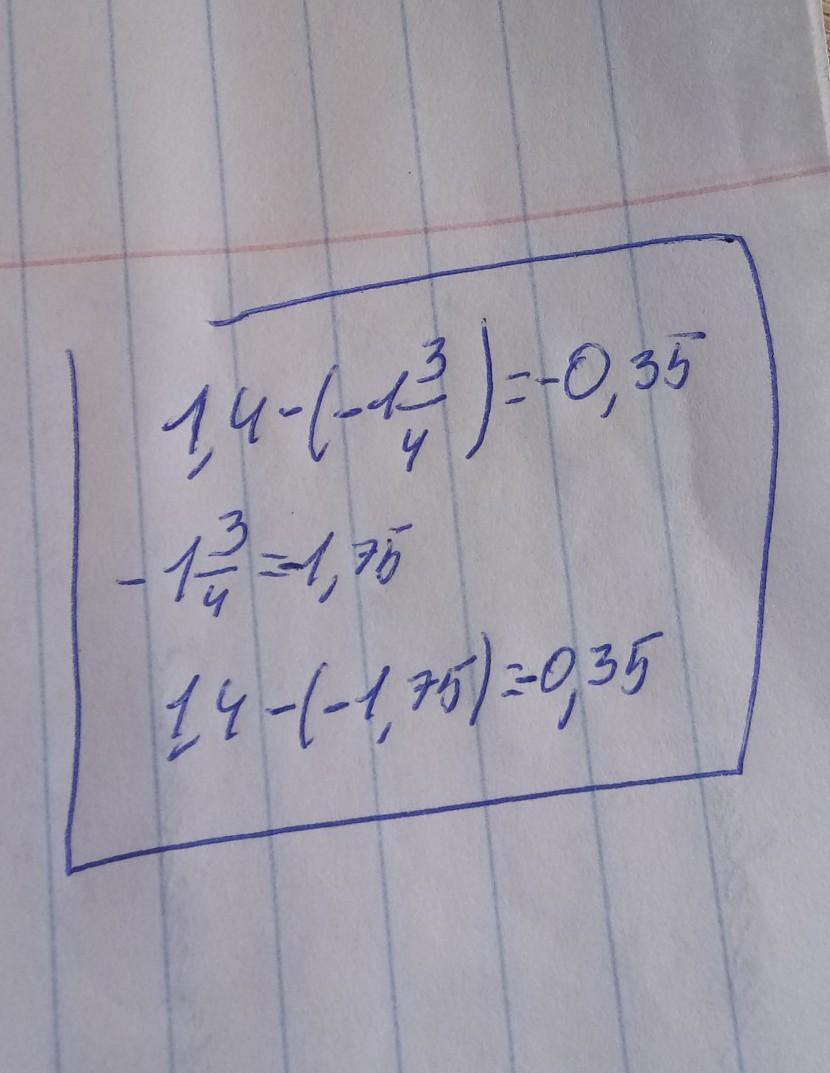 1,4-(-1 3/4)=-0,35
-1 3/4=-1,75
1,4-(-1,75)=-0,35